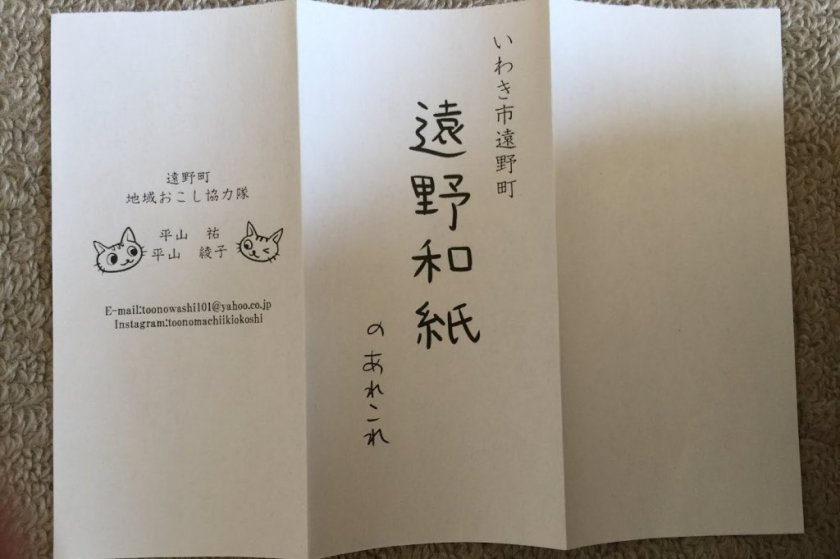 いわき市遠野町
遠野和紙
のあれこれ
遠野町
地域おこし協力隊
平山　祐
平山　綾子
E-mail:toonowashi101@yahoo.co.jp
Instagram:toonomachiikiokoshi